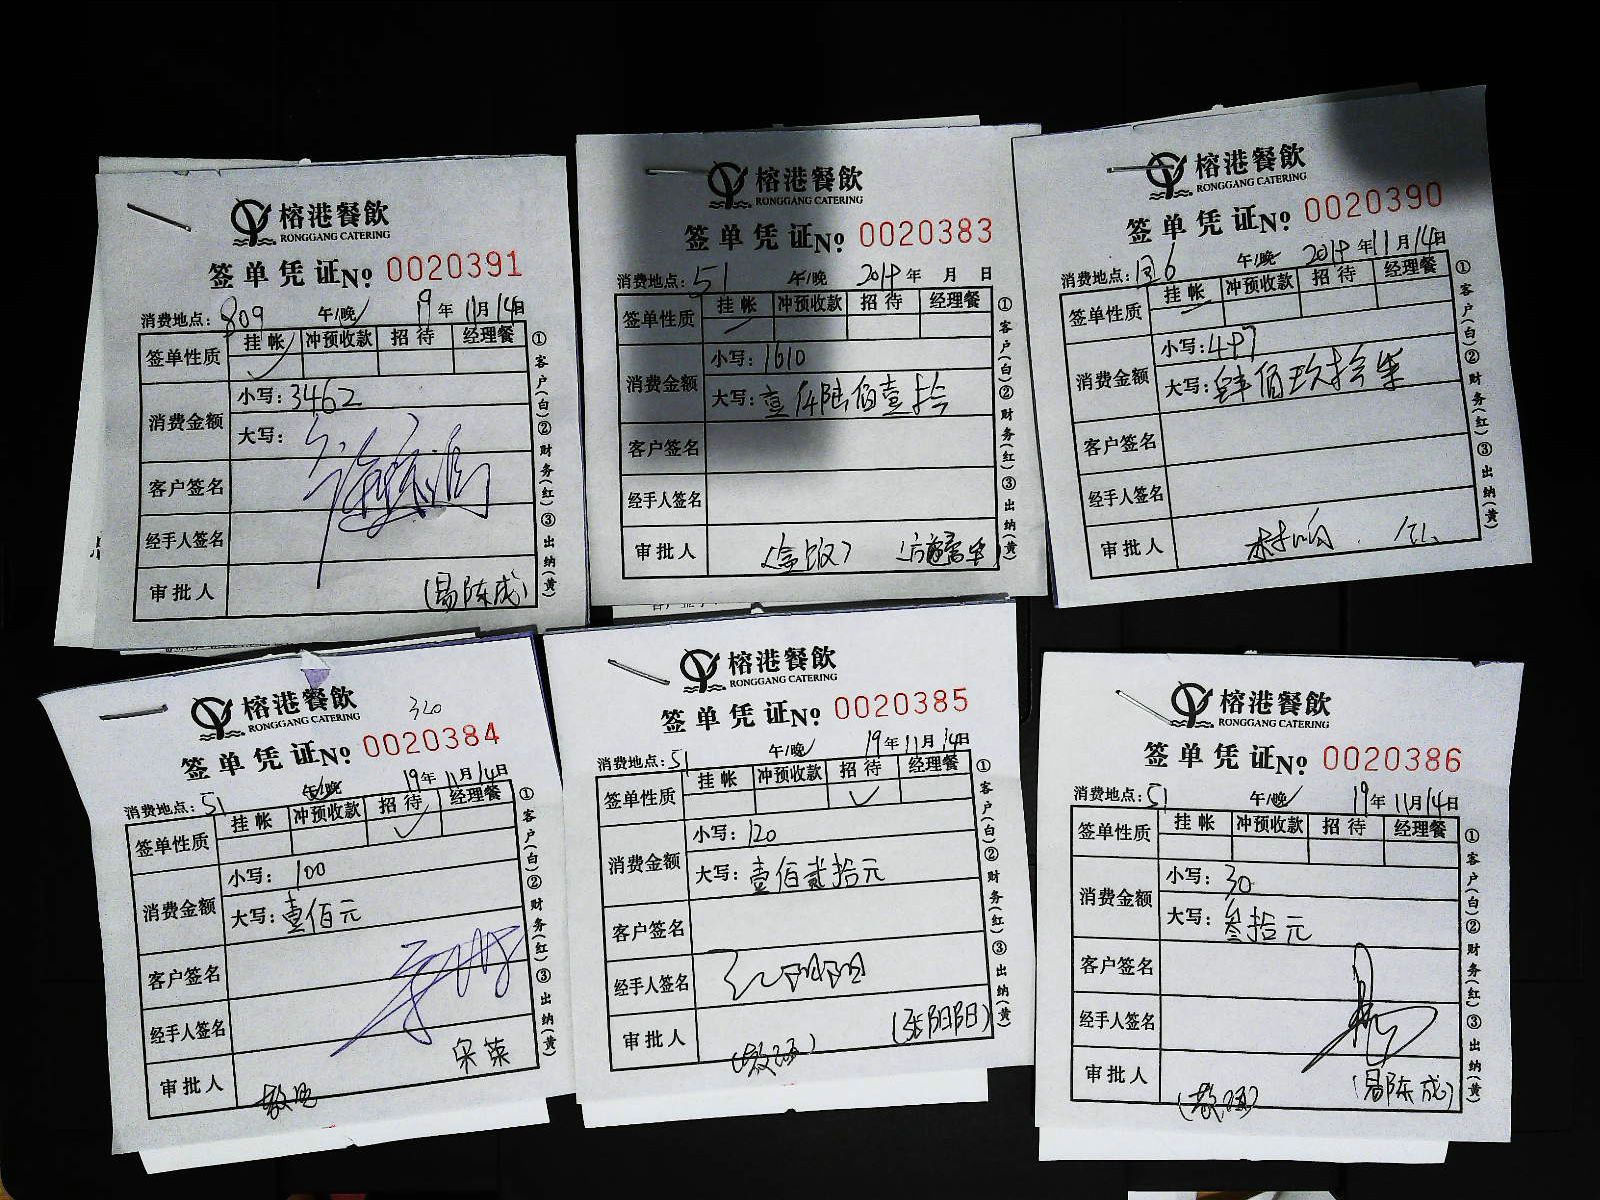 榕港餐飲
RONGGANG CATERING
签单凭证 № 0020391
消费地点: 809 午/晚 19年11月14日
签单性质 挂帐 冲预收款 招待 经理餐
消费金额 小写: 3462
大写:
客户签名
经手人签名
审批人 (易陈成)
①客户(白)②财务(红)③出纳(黄)
榕港餐飲
RONGGANG CATERING
签单凭证 № 0020383
消费地点: 51 午/晚 2019年 月 日
签单性质 挂帐 冲预收款 招待 经理餐
消费金额 小写: 1610
大写: 壹仟陆佰壹拾
客户签名
经手人签名
审批人
①客户(白)②财务(红)③出纳(黄)
榕港餐飲
RONGGANG CATERING
签单凭证 № 0020390
消费地点: 6 午/晚 2019年11月14日
签单性质 挂帐 冲预收款 招待 经理餐
消费金额 小写: 497
大写: 肆佰玖拾柒
客户签名
经手人签名
审批人
①客户(白)②财务(红)③出纳(黄)
榕港餐飲
RONGGANG CATERING
320
签单凭证 № 0020384
消费地点: 51 午/晚 19年11月14日
签单性质 挂帐 冲预收款 招待 经理餐
消费金额 小写: 100
大写: 壹佰元
客户签名
经手人签名
宋荣
审批人
①客户(白)②财务(红)③出纳(黄)
榕港餐飲
RONGGANG CATERING
签单凭证 № 0020385
消费地点: 51 午/晚 19年11月14日
签单性质 挂帐 冲预收款 招待 经理餐
消费金额 小写: 120
大写: 壹佰贰拾元
客户签名
经手人签名
审批人 (张阳阳)
①客户(白)②财务(红)③出纳(黄)
榕港餐飲
RONGGANG CATERING
签单凭证 № 0020386
消费地点: 51 午/晚 19年11月14日
签单性质 挂帐 冲预收款 招待 经理餐
消费金额 小写: 30
大写: 叁拾元
客户签名
经手人签名
审批人 (易陈成)
①客户(白)②财务(红)③出纳(黄)